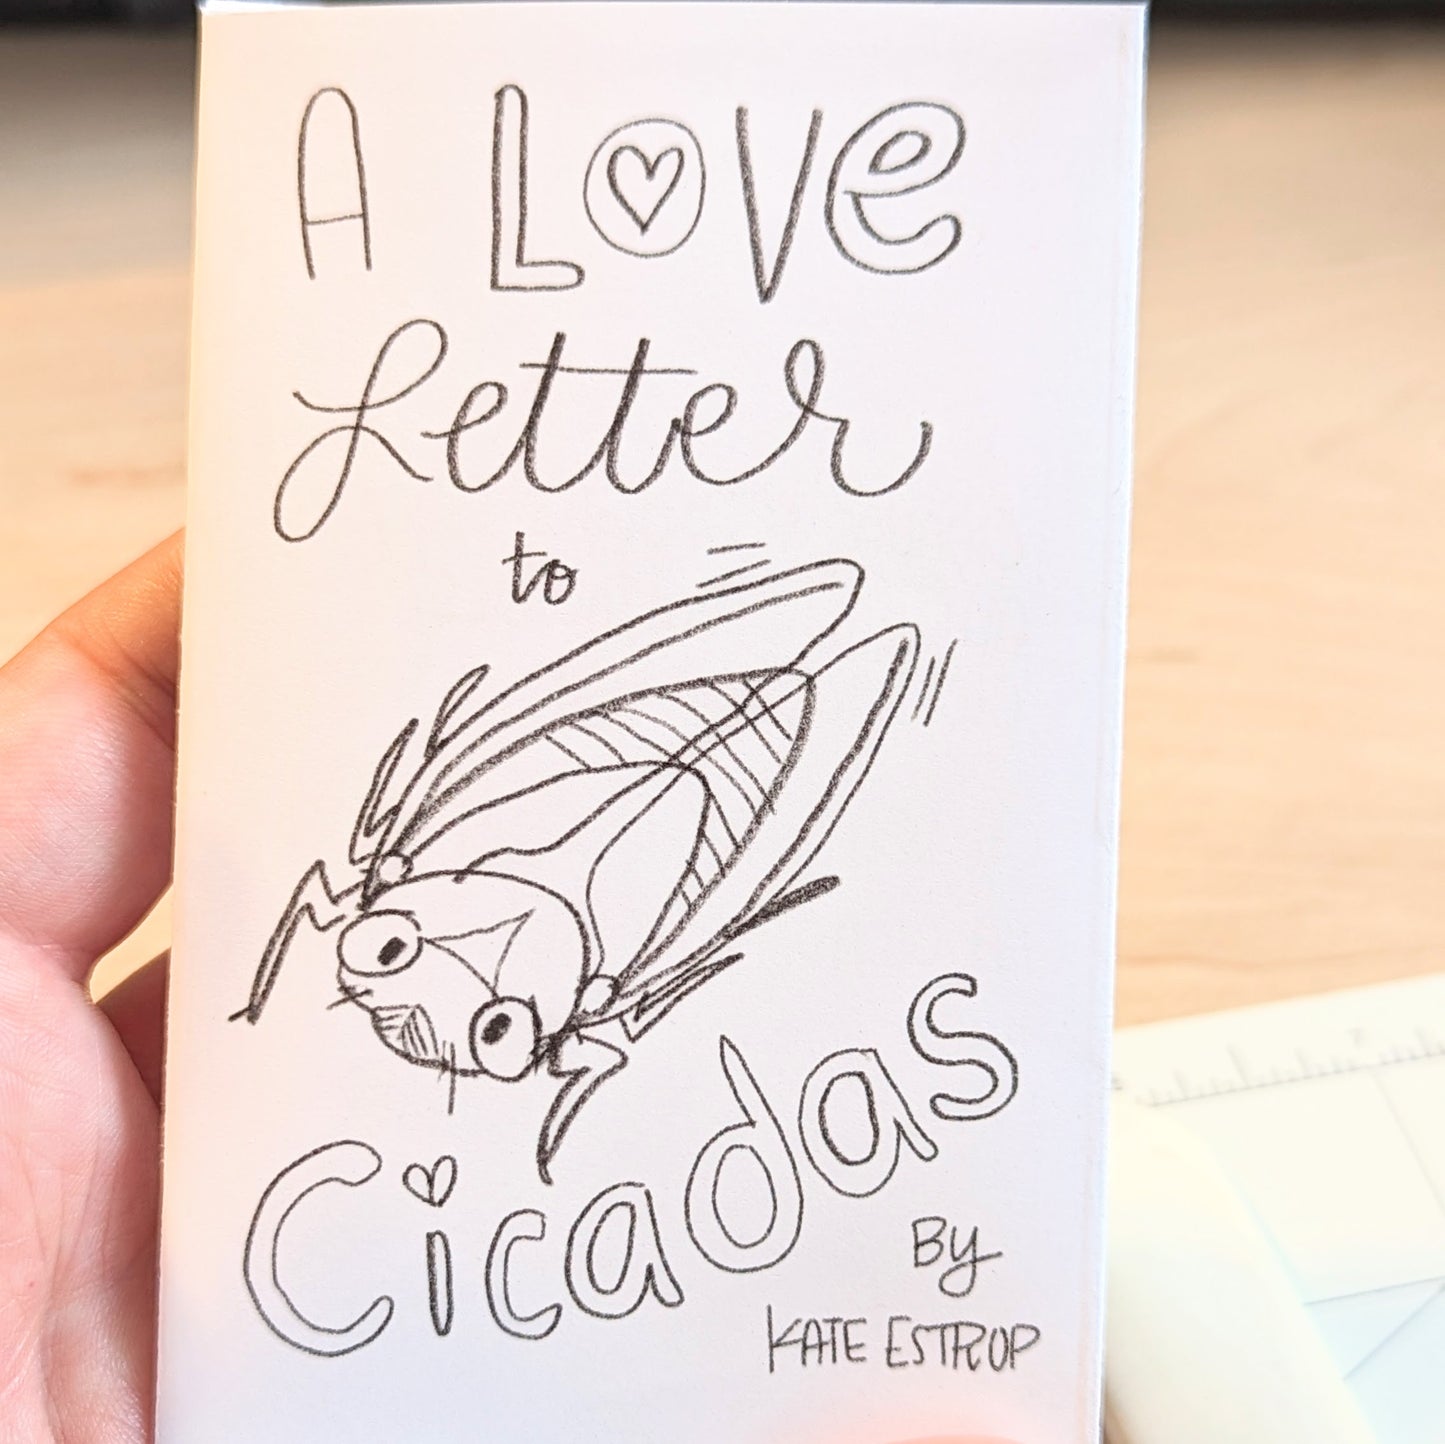 A LOVe
Letter
to
Cicadas
By
KATE ESTRUP